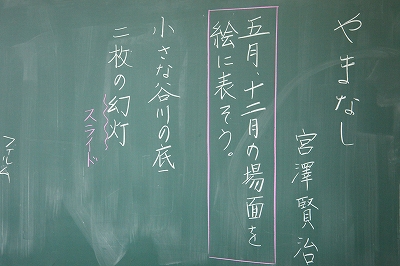 やまなし
宮澤賢治
五月、十二月の場面を
絵に表そう。
小さな谷川の底
二枚の幻灯
スライド